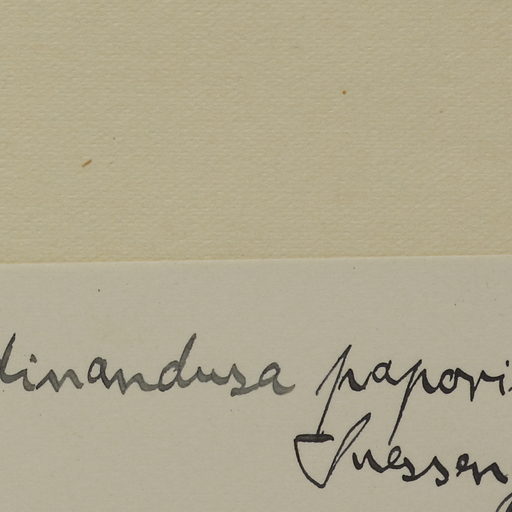 dinandusa papori
Suesseng